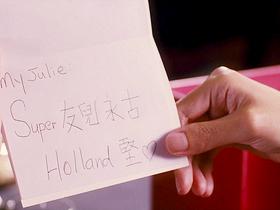 My Julie:
Super 友兒永古
Holland 堅♡